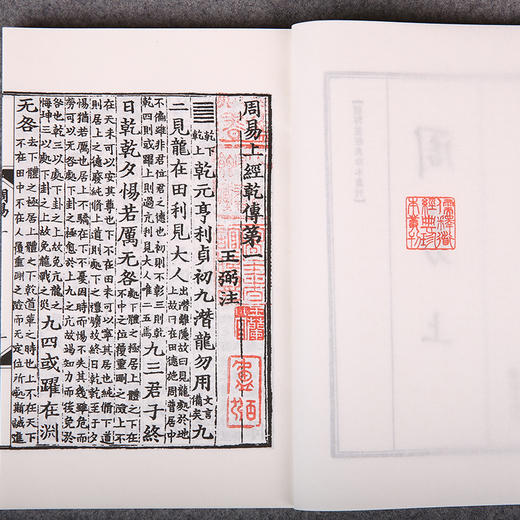 周易上經乾傳第一
王弼注
䷀乾下乾上乾元亨利貞初九潛龍勿用文言備矣九
二見龍在田利見大人出潛離隱故曰見龍處於地上故曰在田德施周普居中
不偏雖非君位君之德也初則不彰三則乾乾四則或躍上則過亢利見大人唯二五焉九三君子終
日乾乾夕惕若厲无咎處下體之極居上體之下在不中之位履重剛之險上不
在天未可以安其尊也下不在田未可以寧其居也純脩下道則居上之德廢純脩上道則處下之禮曠故終日乾乾至于夕
惕猶若厲也居上不驕在下不憂因時而惕不失其幾雖危而勞可以无咎處下卦之極愈於上九之亢故竭知力而後免於
咎也乾三以處下卦之上故免亢龍之悔坤三以處下卦之上故免龍戰之災九四或躍在淵
无咎去下體之極居上體之下乾道革之時也上不在天下不在田中不在人履重剛之險而无定位所處斯誠進
周易